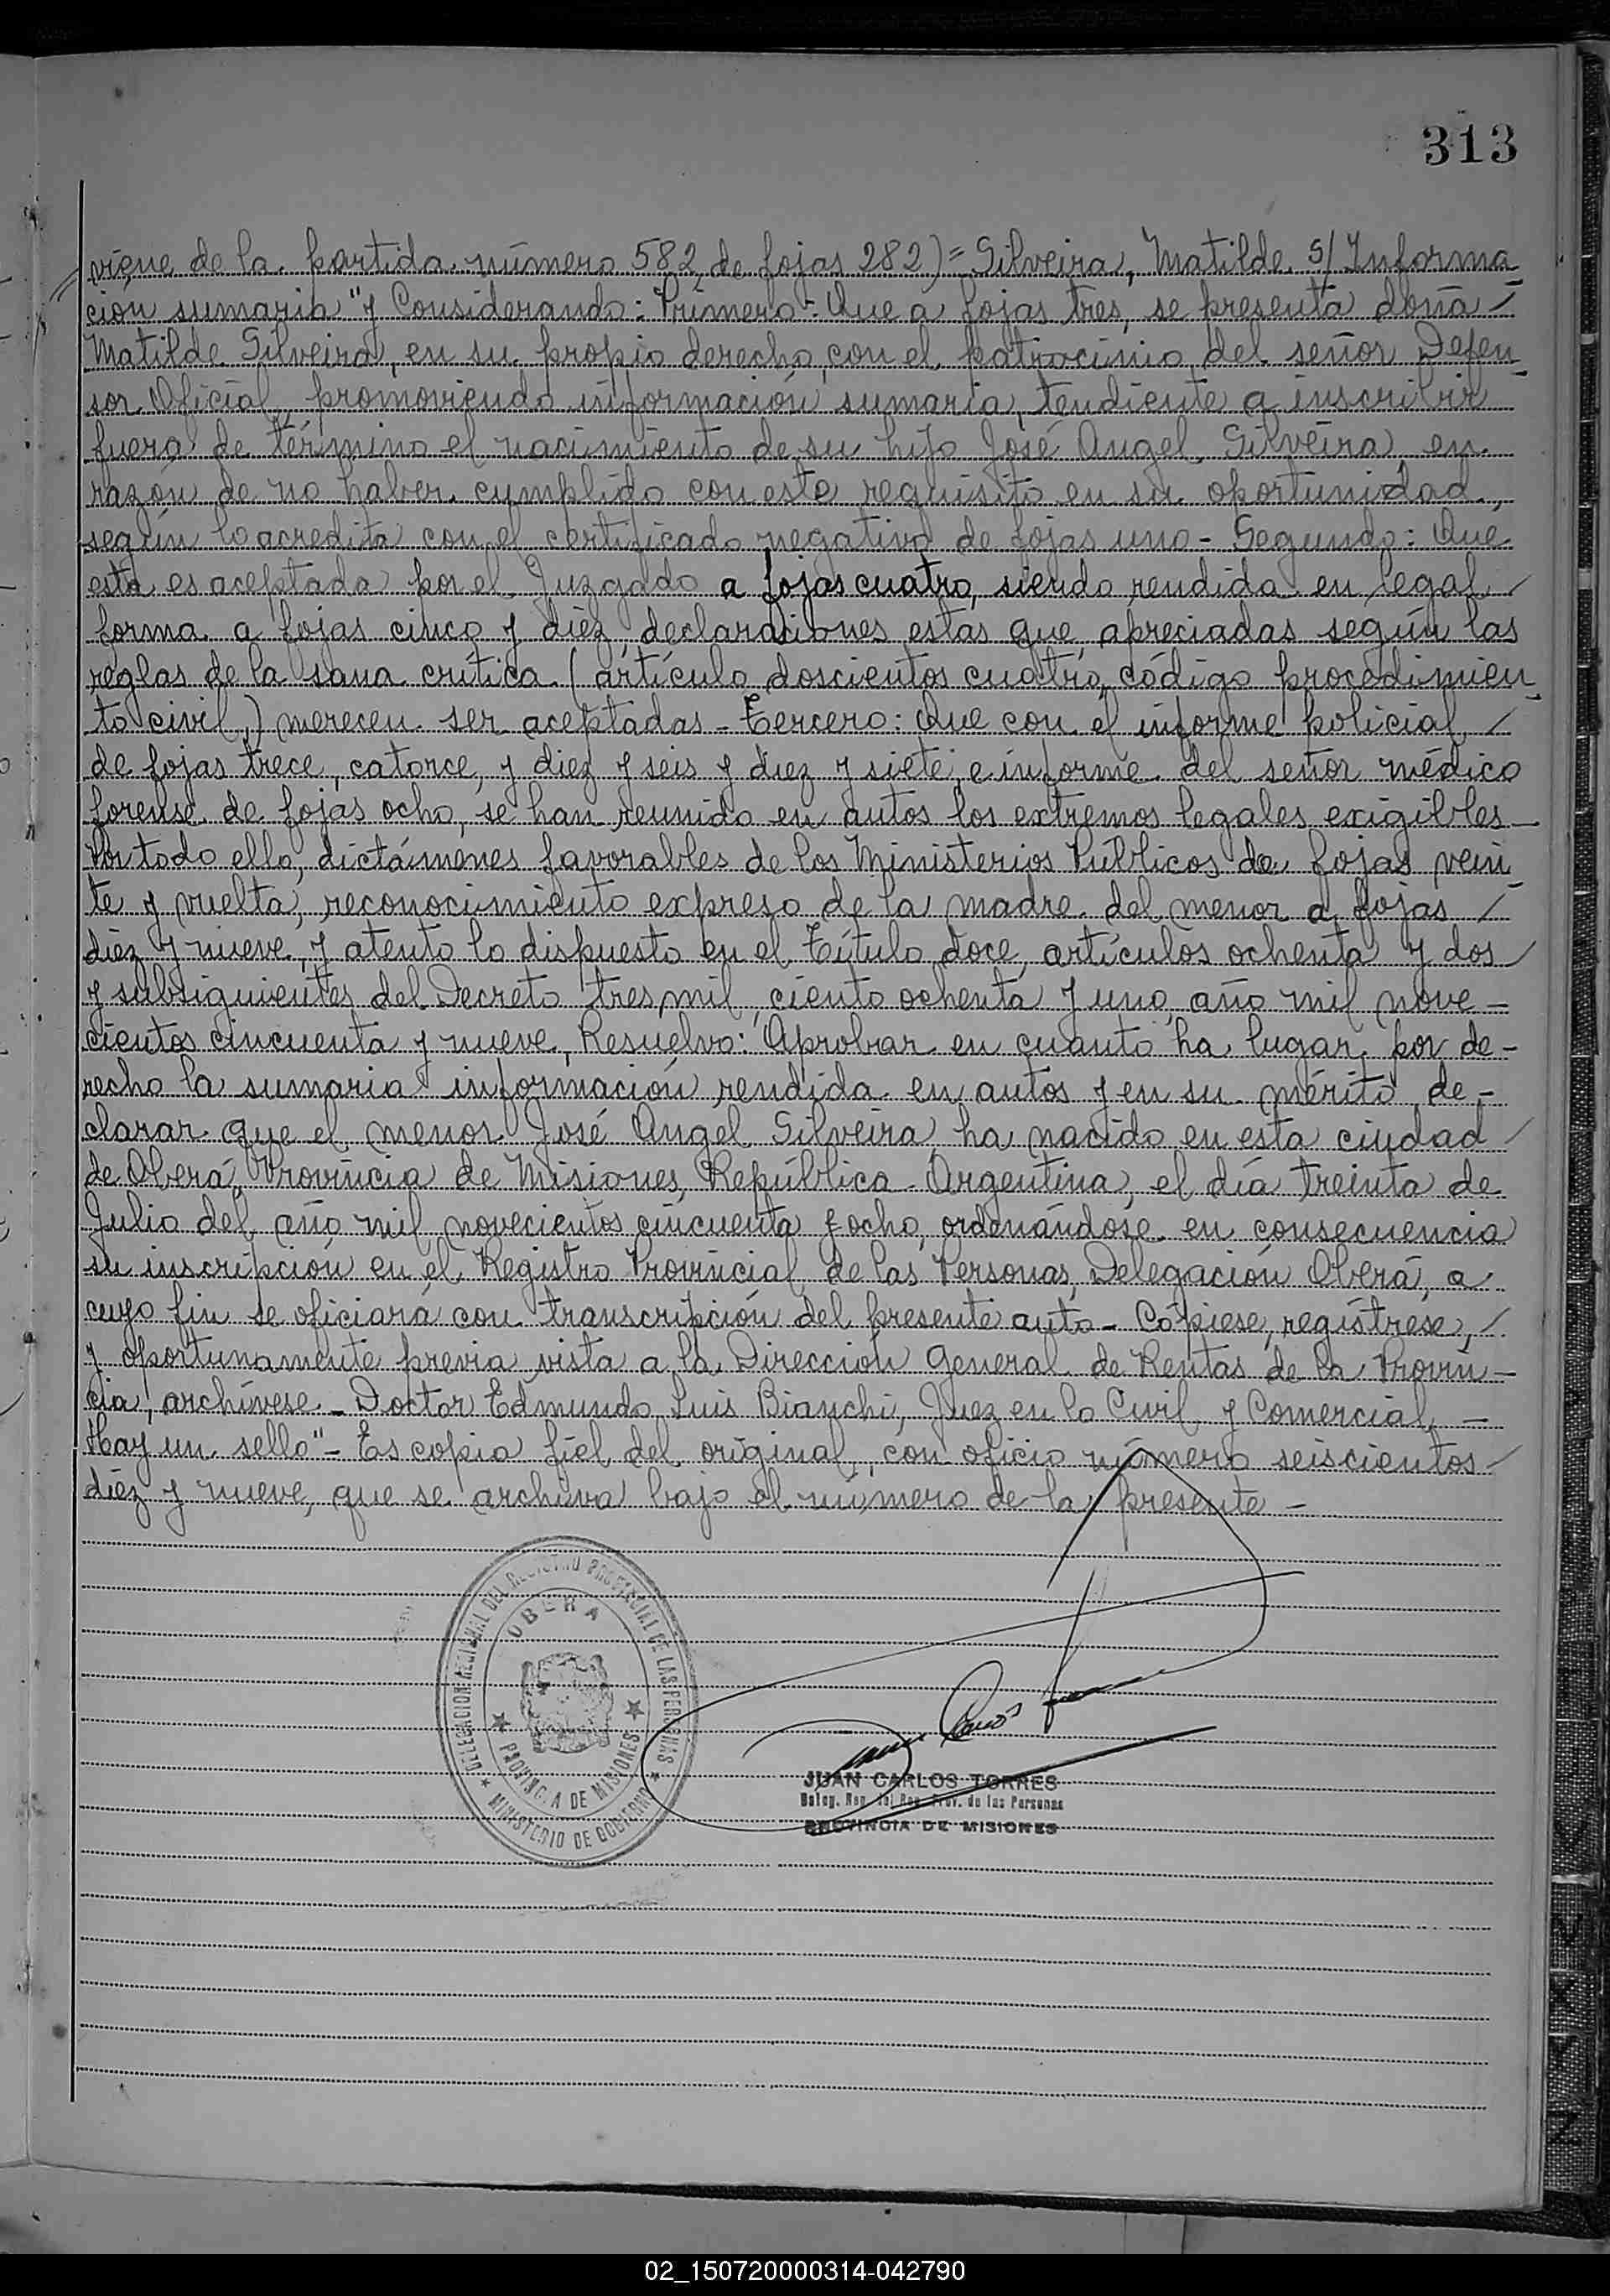 313
viene de la partida número 582 de fojas 282) = Silveira, Matilde s/ Informa
ción sumaria" y Considerando: Primero: Que a fojas tres, se presenta doña /
Matilde Silveira, en su propio derecho, con el patrocinio del señor Defen
sor Oficial, promoviendo información sumaria, tendiente a inscribir
fuera de término el nacimiento de su hijo José Angel Silveira, en
razón de no haber cumplido con este requisito en su oportunidad,
según lo acredita con el certificado negativo de fojas uno - Segundo: Que
esta es aceptada por el Juzgado a fojas cuatro, siendo rendida en legal /
forma a fojas cinco y diez, declaraciones estas que, apreciadas según las
reglas de la sana crítica (artículo doscientos cuatro, código procedimien
to civil,) merecen ser aceptadas - Tercero: Que con el informe policial /
de fojas trece, catorce, y diez y seis y diez y siete, e informe del señor médico
forense de fojas ocho, se han reunido en autos los extremos legales exigibles -
Por todo ello, dictámenes favorables de los Ministerios Públicos de fojas vein
te y vuelta, reconocimiento expreso de la madre del menor a fojas /
diez y nueve, y atento lo dispuesto en el Título doce, artículos ochenta y dos /
y subsiguientes del Decreto tres mil, ciento ochenta y uno, año mil nove -
cientos cincuenta y nueve, Resuelvo: Aprobar en cuanto ha lugar por de -
recho la sumaria información rendida en autos y en su mérito, de -
clarar que el menor José Angel Silveira, ha nacido en esta ciudad /
de Oberá, Provincia de Misiones, República Argentina, el día treinta de
Julio del año mil novecientos cincuenta y ocho, ordenándose en consecuencia
su inscripción en el Registro Provincial de las Personas, Delegación Oberá, a
cuyo fin se oficiará con transcripción del presente auto - Cópiese, regístrese, /
y oportunamente previa vista a la Dirección General de Rentas de la Provin -
cia, archívese - Doctor Edmundo Luis Bianchi, Juez en lo Civil y Comercial, -
Hay un sello" - Es copia fiel del original, con oficio número seiscientos /
diez y nueve, que se archiva bajo el número de la presente -
DELEGACION REGIONAL DEL REGISTRO PROVINCIAL DE LAS PERSONAS
OBERA
PROVINCIA DE MISIONES
MINISTERIO DE GOBIERNO
JUAN CARLOS TORRES
Deleg. Reg. del Reg. Prov. de las Personas
PROVINCIA DE MISIONES
02_150720000314-042790